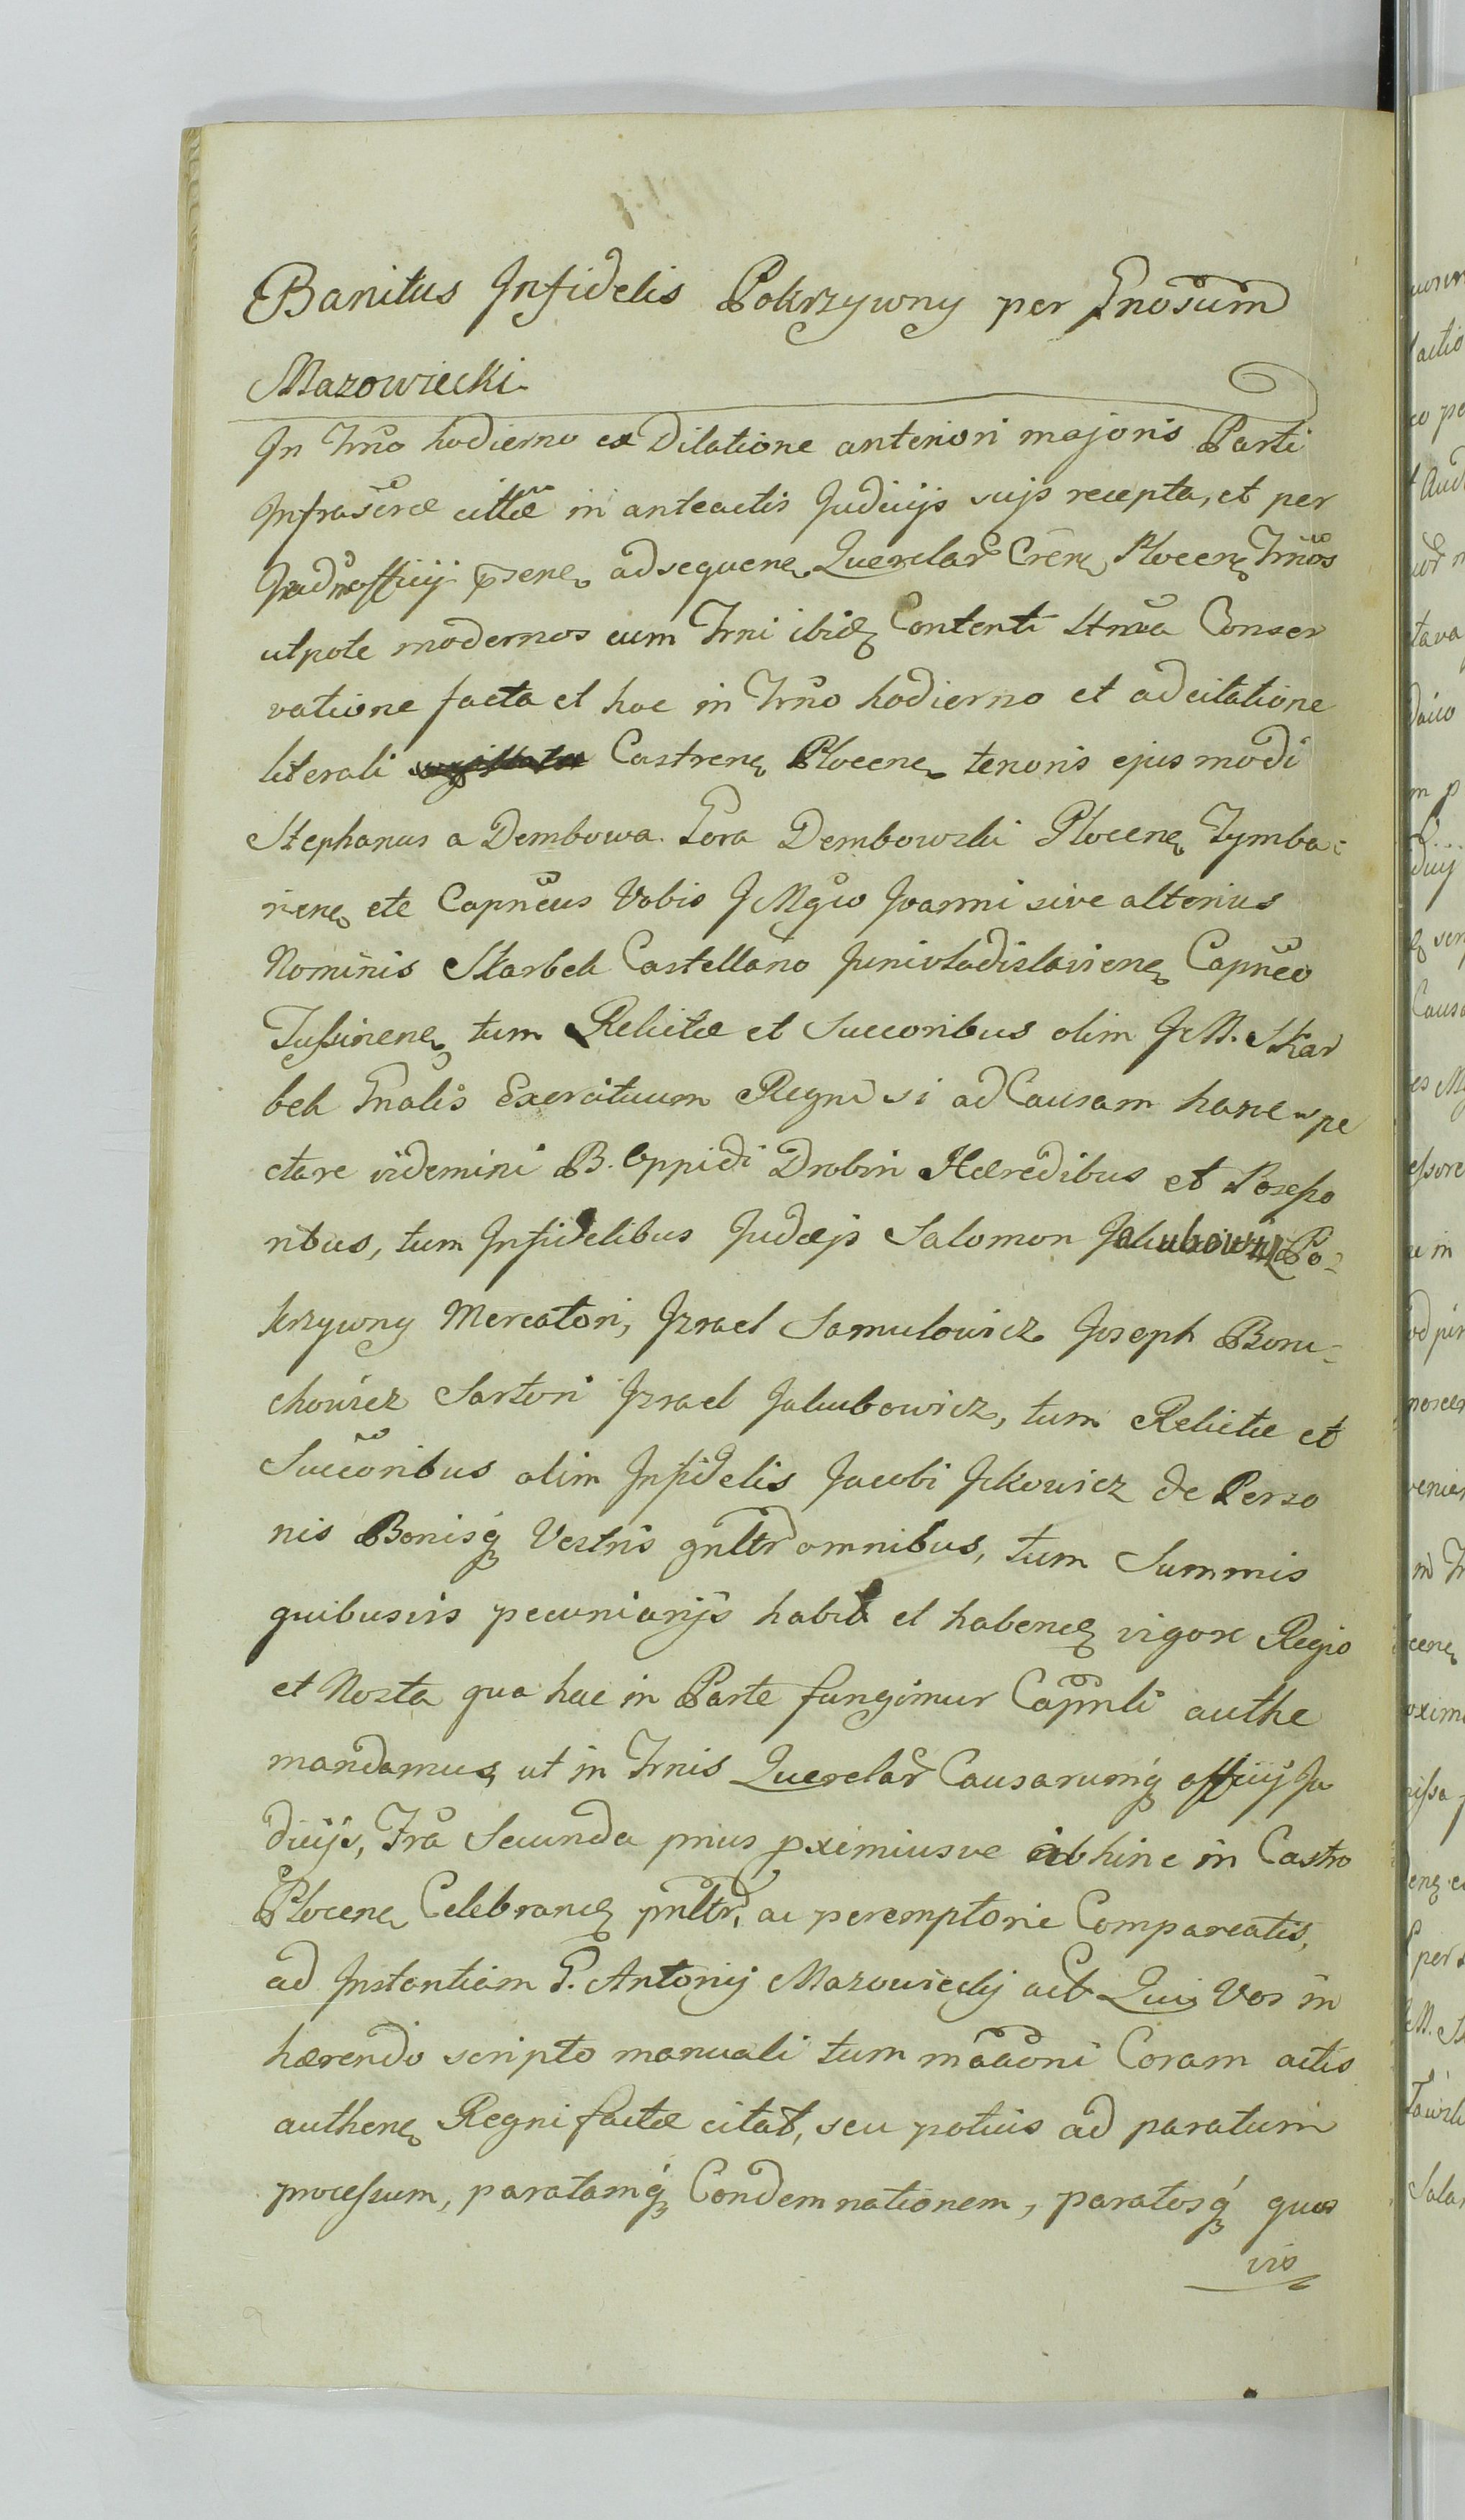 Banitus Infidelis Pokrzywny per Gnosum
Mazowiecki
In Trno hodierno ex Dilatione anteriori majoris Parti
Infrascrae cittae in anteactis Judicijs sujs recepta, et per
officij adsequen Querelar Cren Plocen Trnos
utpote modernos cum Trni ibid Contenti Conser
vatione facta et hac in Trno hodierno et ad citatione
literali Castren Plocen tenoris ejusmodi
Stephanus a Dembowa Gora Dembowski Plocen Tymba:
rien etc Capneus Vobis J Mgco Joanni sive alterius
Nominis Skarbek Castellano Junivladislavien Capneo
Tussinen tum Relictae et Succoribus olim J M. Skar
bek Gnalis Exercituum Regni si ad Causam hanc spe
ctare videmini B. Oppidi Drobin Haeredibus et Posesso
ribus, tum Infidelibus Judaejs Salomon Jakubowicz Po-
krzywny Mercatori, Izrael Samulowicz Joseph Boru-
chowicz Sartori Izrael Jakubowicz, tum Relictae et
Succoribus olim Infidelis Jacobi Ickowicz de Perso
nis Bonisq Vestris gnltr omnibus, tum Summis
quibusvis pecuniarijs habit et habend vigore Regio
et Nosta qua hac in Parte fungimur Capnli authe
mandamus, ut in Trnis Querelar Causarumq officij Ju
dicijs, Fra Secunda prius pximiusve abhinc in Castro
Plocen Celebrand pnltr, ac peremptorie Compareatis,
ad Instantiam G. Antonij Mazowiecky act Qui Vos in
haerendo scripto manuali tum Coram actis
authen Regni factae citat, seu potius ad paratum
processum, paratamq Condemnationem, paratosq quos
vis